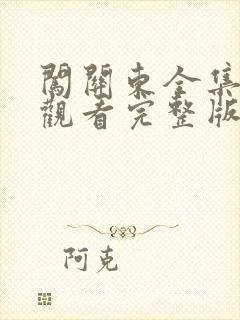 闖關東全集
觀看完整版
阿克